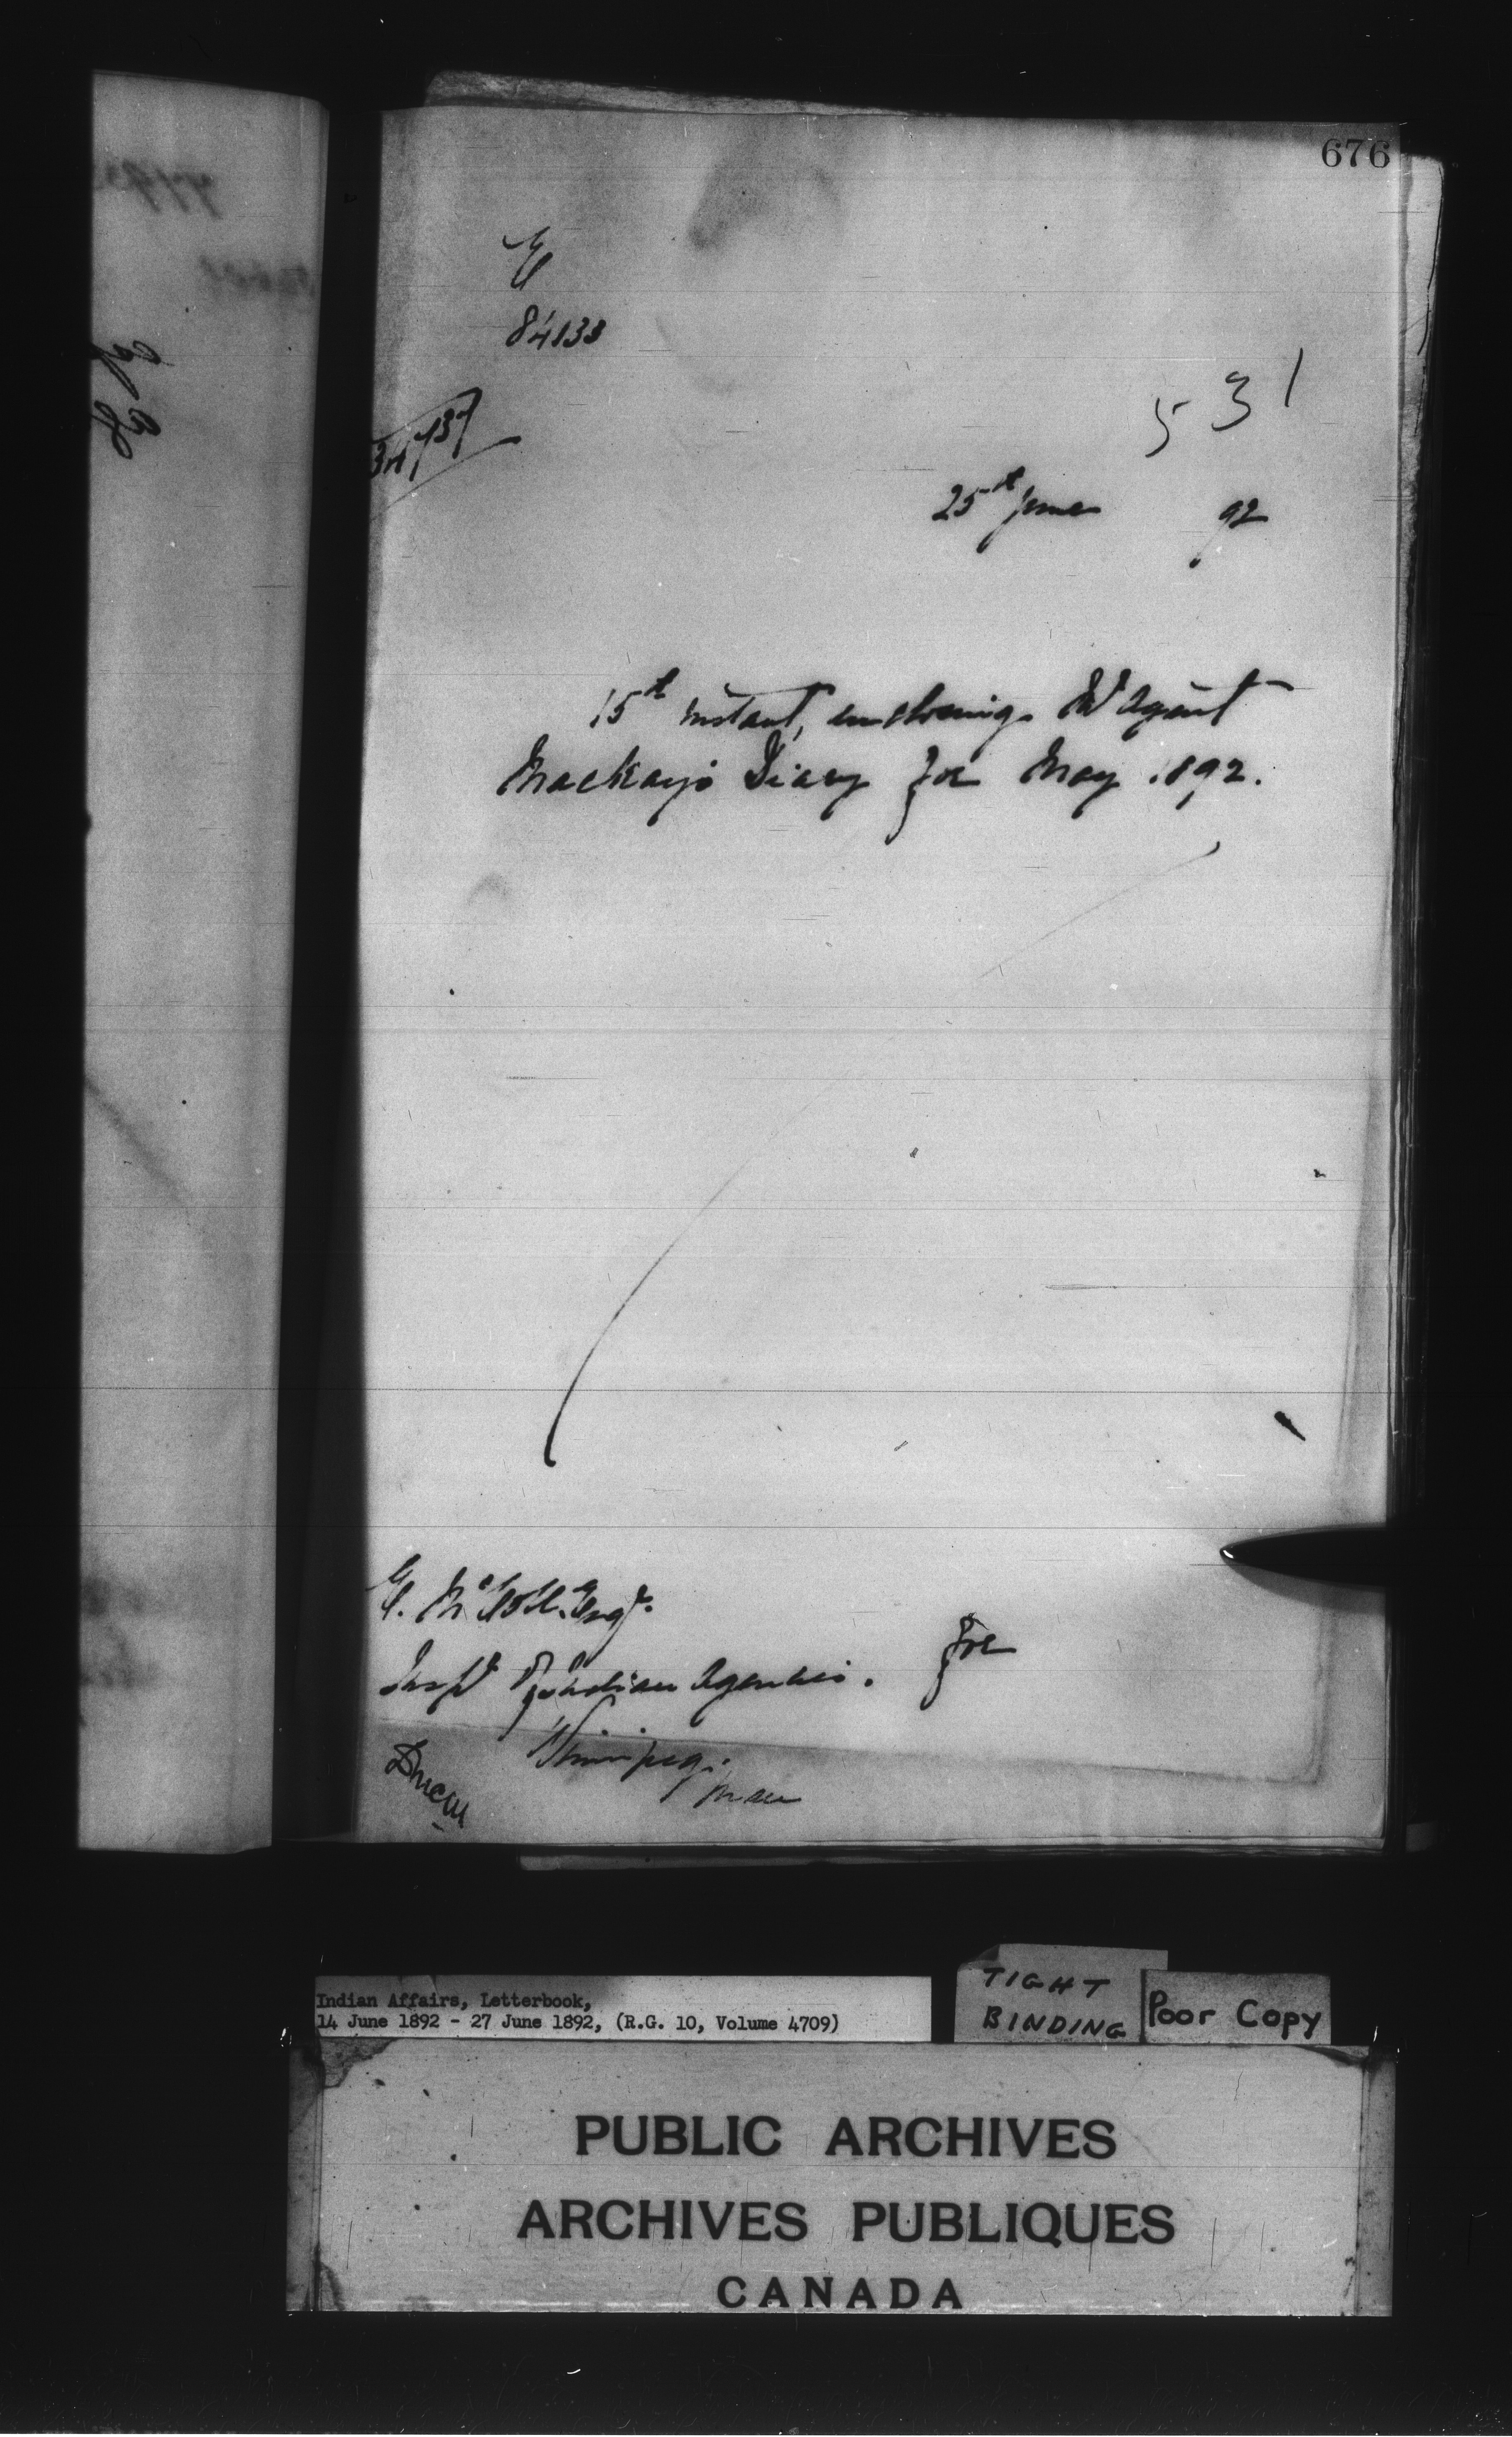 676
84133
531
25th June 92
15th instant, enclosing Mr Agent
Mackay's Diary for May 1892.
E. McColl. Esqr.
Insptr of Indian Agencies. for
Winnipeg.
Man
Indian Affairs, Letterbook,
14 June 1892 - 27 June 1892, (R.G. 10, Volume 4709)
TIGHT
BINDING
Poor Copy
PUBLIC ARCHIVES
ARCHIVES PUBLIQUES
CANADA